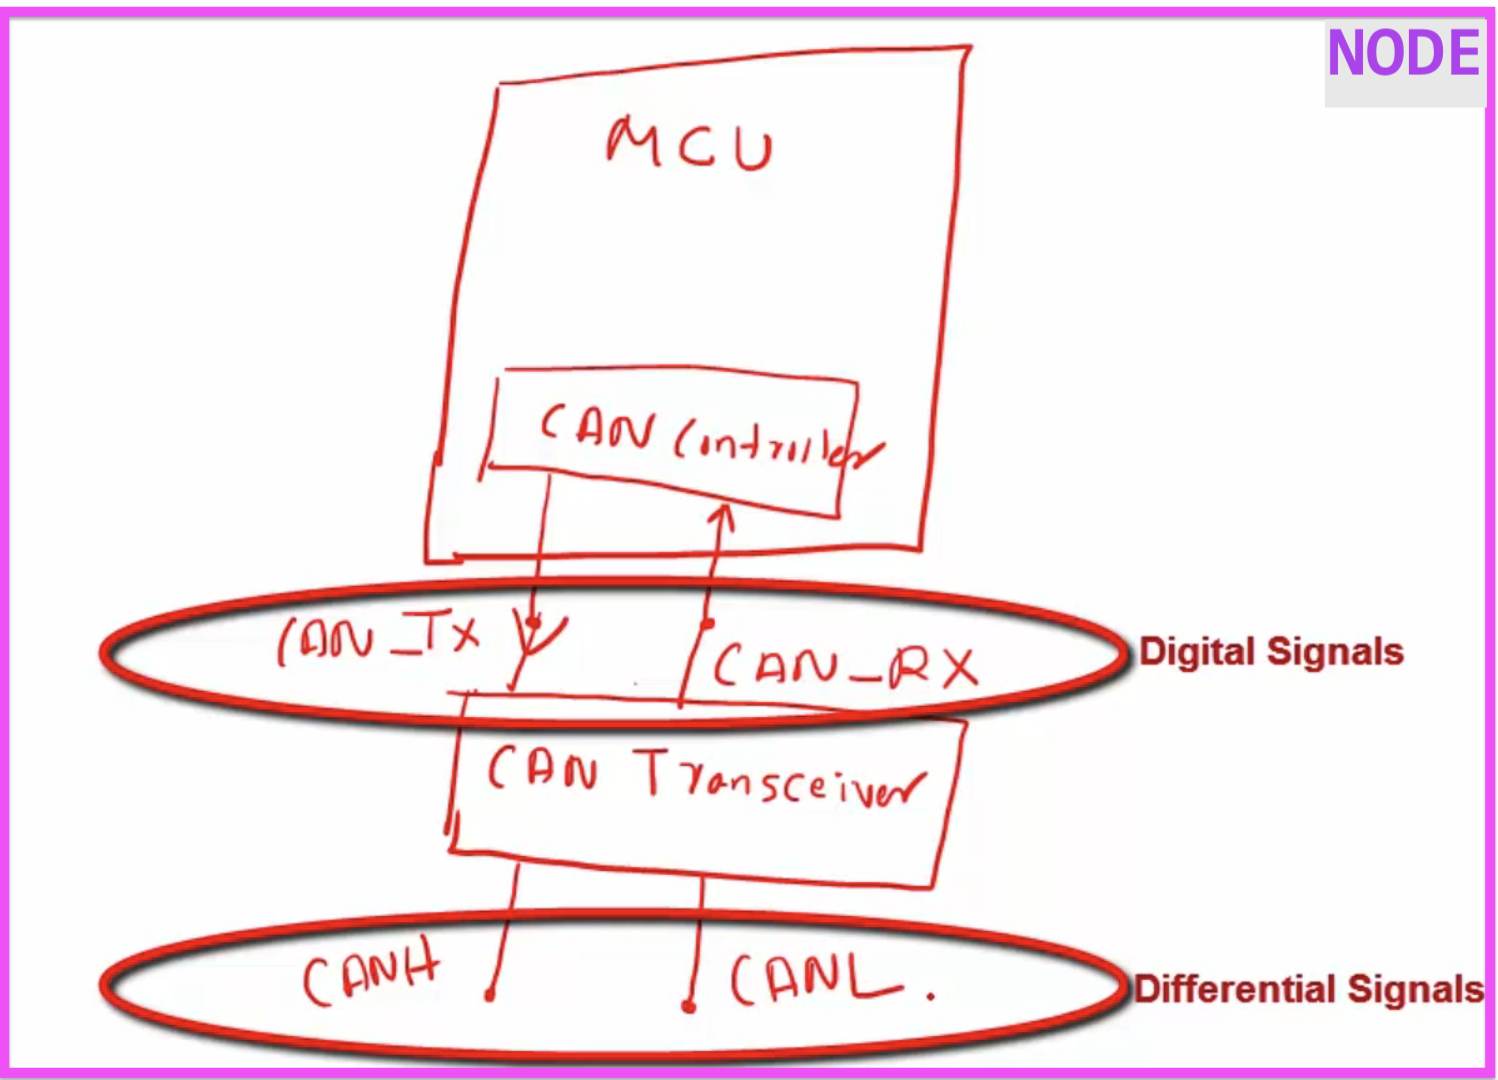 NODE
MCU
CAN Controller
CAN_Tx
CAN_RX
Digital Signals
CAN Transceiver
CANH
CANL.
Differential Signals